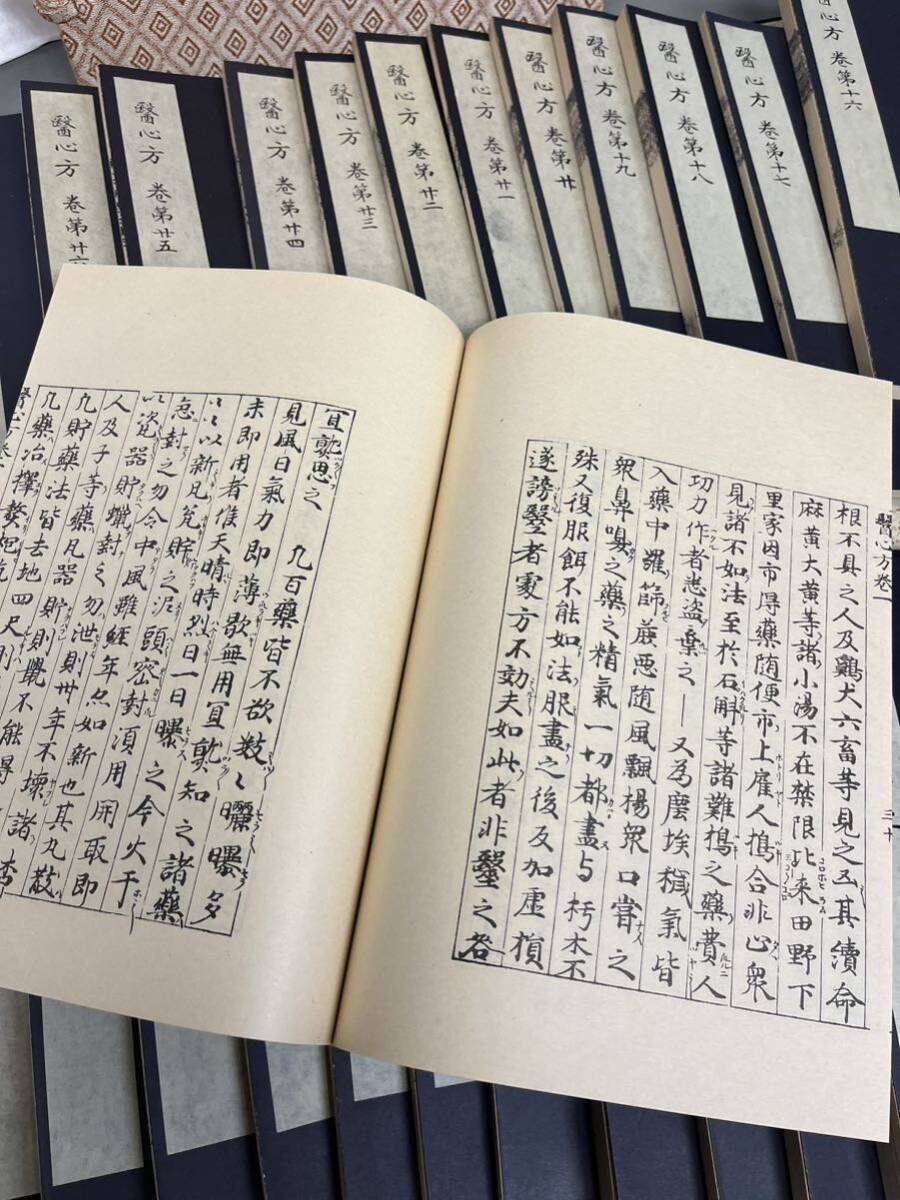 醫心方 卷第十六
醫心方 卷第十七
醫心方 卷第十八
醫心方 卷第十九
醫心方 卷第廿
醫心方 卷第廿一
醫心方 卷第廿二
醫心方 卷第廿三
醫心方 卷第廿四
醫心方 卷第廿五
醫心方 卷第廿六
醫心方卷一
三十
根不具之人及鷄犬六畜等見之其續命
麻黄大黄等諸小湯不在禁限比来田野下
里家因市得藥随便市上雇人擣合非止衆
見諸不如法至於石斛等諸難擣之藥費人
功力作者悉盗棄之又為塵埃穢氣皆
入藥中羅篩麁悪随風飄楊衆口嘗之
衆鼻嗅之藥之精氣一切都盡与朽木不
殊又復服餌不能如法服盡之後反加虚損
遂謗毉者處方不効夫如此者非毉之咎
冝熟思之 凡百藥皆不欲數〻曬曝多
見風日氣力即薄歇無用冝熟知之諸藥
未即用者惟天晴時烈日一日曝之令火干
以新瓦瓮貯之泥頭密封湏用開取即
急封之勿令中風雖経年亦如新也其丸散
以瓷器貯蠟封之勿泄則卅年不壞諸杏
人及子等藥凡器貯則鼠不能得
凡貯藥法皆去地四尺則
凡藥冶擇熬炮訖